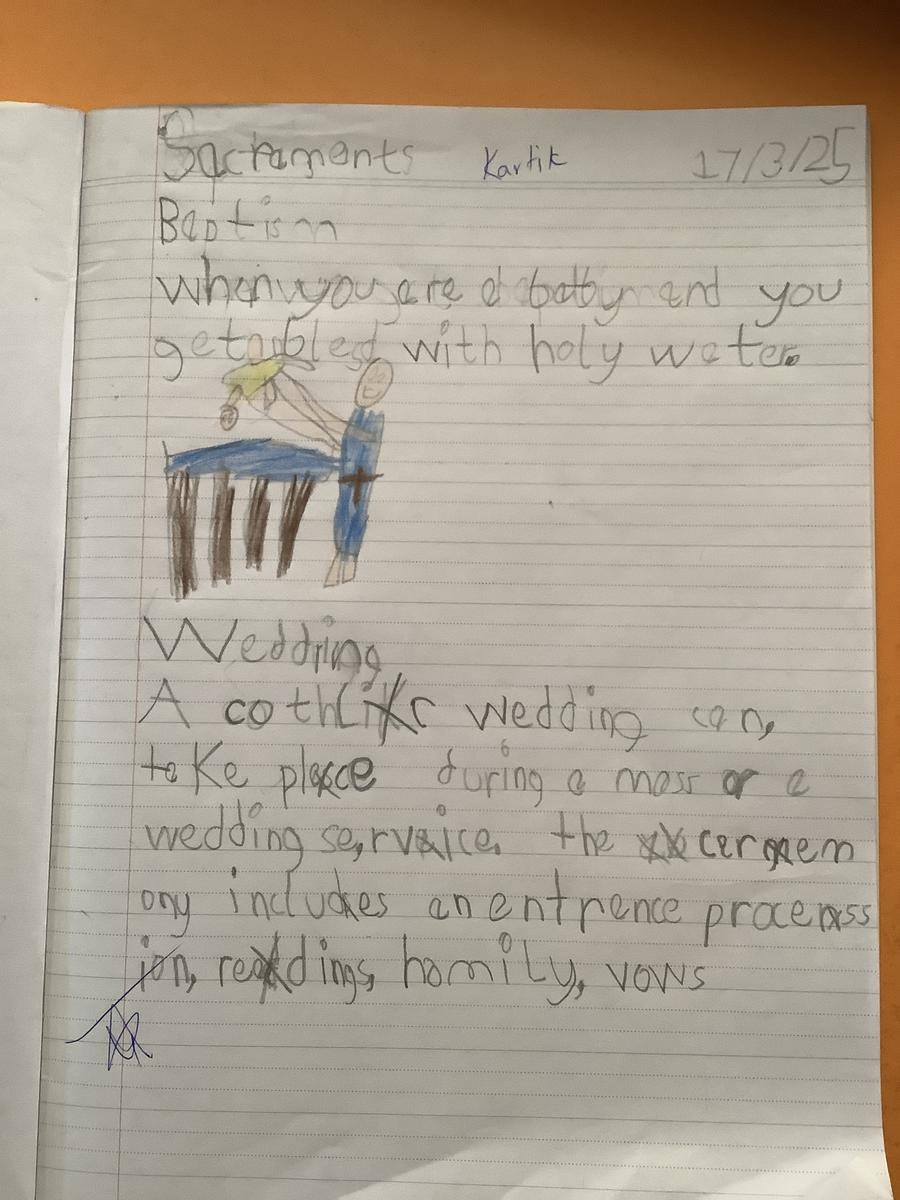 Sacraments Kartik 17/3/25
Baptism
when you are a baby and you
get bled with holy water.
Wedding
A cothlic wedding can,
take place during a mass or a
wedding se,rvice. the cerem
ony includes an entrence process
ion, readings, homily, vows